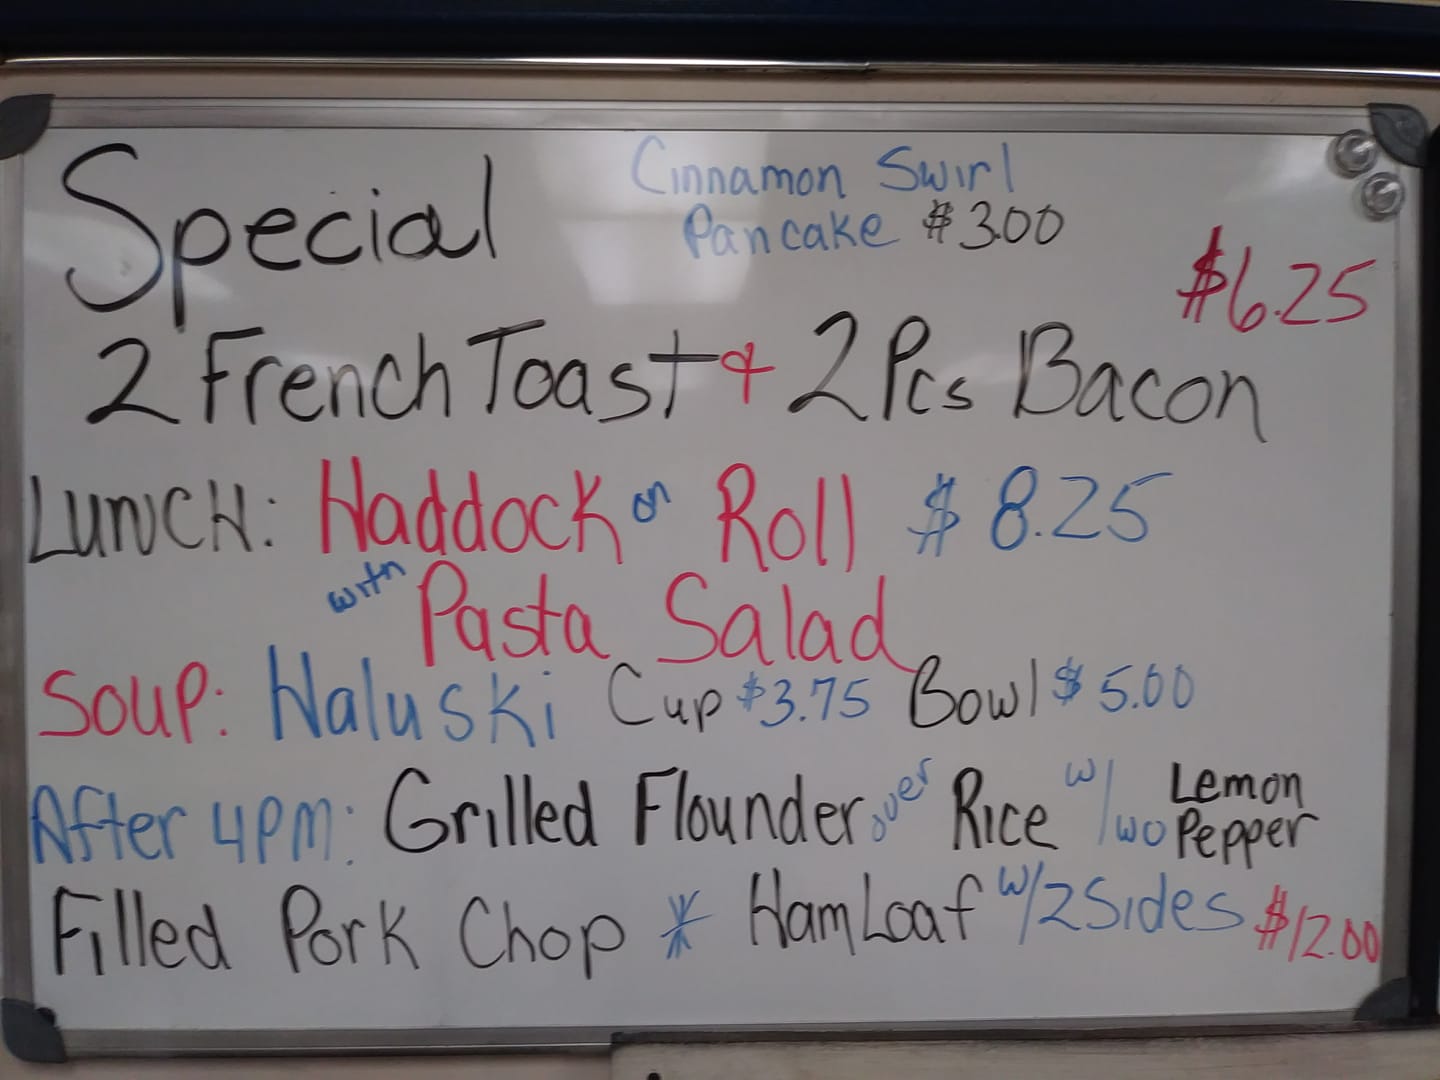 Special
Cinnamon Swirl
Pancake $3.00
$6.25
2 French Toast & 2 Pcs Bacon
LUNCH: Haddock on Roll $8.25
with Pasta Salad
Soup: Haluski Cup $3.75 Bowl $5.00
After 4PM: Grilled Flounder over Rice w/wo Lemon Pepper
Filled Pork Chop * Ham Loaf w/2 Sides $12.00